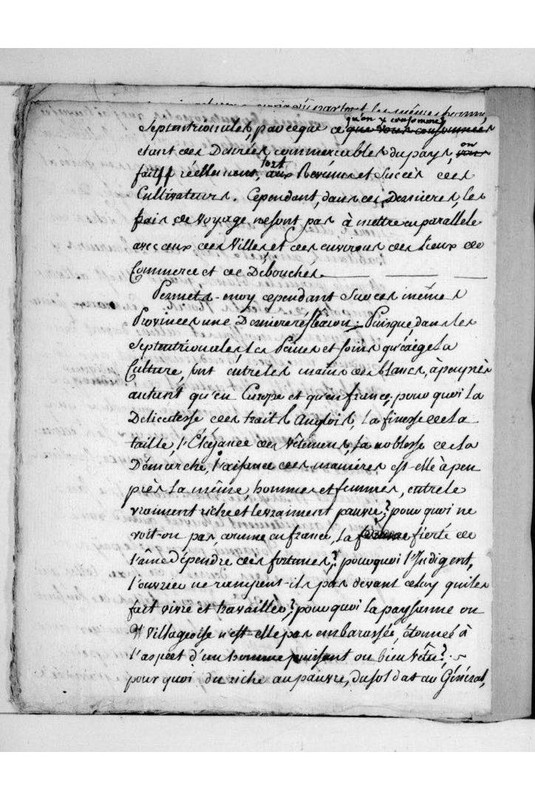 partout les mêmes
qu'on y consomme
Septentrionales, parceque ce que vous consommez
étant des Denrées commerciables du pays vous on
fait réellement tort aux Revenus et Succès des
Cultivateurs. Cependant, dans ces Dernieres, les
frais de Voyage ne sont pas à mettre en parallele
avec ceux des Villes et des environs des Lieux de
Commerce et de Debouchés.
Permets-moy cependant Sur ces mêmes
Provinces une Derniere réflexion: Puisque dans les
Septentrionales, Les Peines et soins qu'exige La
Culture, sont entre les mains des blancs, à peu près
autant qu'en Europe et qu'en france, pourquoi La
Délicatesse des traits Anglois, La finesse de la
taille, l'Elégance des Vêtemens, La noblesse de la
Démarche, l'aisance des manières est-elle à peu
près La même, hommes et femmes, entre le
vraiment riche et le vraiment pauvre? pourquoi ne
voit-on pas comme en france, La fierté de
l'âme dépendre des fortunes? pourquoi l'Indigent,
l'ouvrier ne rampent-ils pas devant celuy qui les
fait vivre et travailler? pourquoi la paysanne ou
Villageoise n'est-elle pas embarassée, étonnée à
l'aspect d'un homme puissant ou bien Vêtu?
pourquoi du riche au pauvre, du soldat au Général,